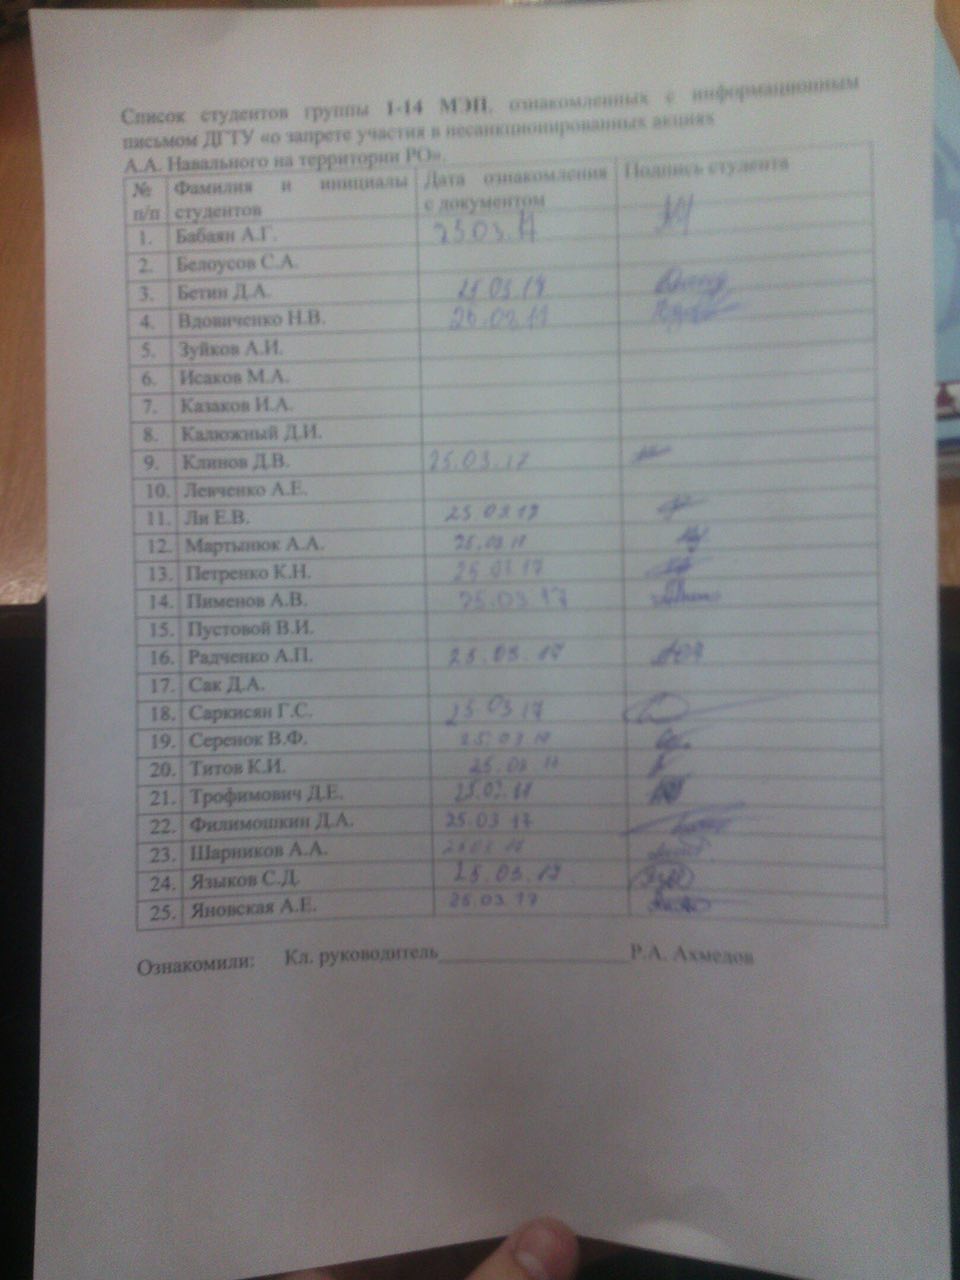 Список студентов группы 1-14 МЭП, ознакомленных с информационным
письмом ДГТУ «о запрете участия в несанкционированных акциях
А.А. Навального на территории РО».
№ п/п Фамилия и инициалы студентов Дата ознакомления с документом Подпись студента
1. Бабаян А.Г. 25.03.17
2. Белоусов С.А.
3. Бетин Д.А.
4. Вдовиченко Н.В.
5. Зуйков А.И.
6. Исаков М.А.
7. Казаков И.А.
8. Калюжный Д.И.
9. Клинов Д.В. 25.03.17
10. Левченко А.Е.
11. Ли Е.В.
12. Мартынюк А.А.
13. Петренко К.Н. 25.03.17
14. Пименов А.В. 25.03.17
15. Пустовой В.И.
16. Радченко А.П. 25.03.17
17. Сак Д.А.
18. Саркисян Г.С. 25.03.17
19. Серенок В.Ф.
20. Титов К.И.
21. Трофимович Д.Е.
22. Филимошкин Д.А. 25.03 17
23. Шарников А.А.
24. Языков С.Д. 25.03.17
25. Яновская А.Е. 25.03.17
Ознакомили: Кл. руководитель Р.А. Ахмедов